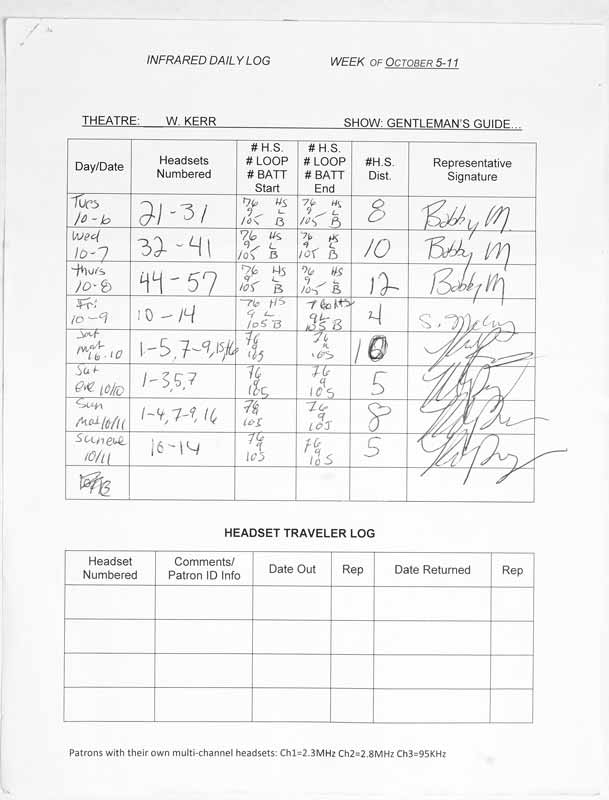 INFRARED DAILY LOG WEEK OF OCTOBER 5-11
THEATRE: W. KERR SHOW: GENTLEMAN'S GUIDE...
Day/Date Headsets Numbered # H.S. # LOOP # BATT Start # H.S. # LOOP # BATT End #H.S. Dist. Representative Signature
Tues 10-6 21-31 76 HS 9 L 105 B 76 HS 9 L 105 B 8 Bobby M.
Wed 10-7 32-41 76 HS 9 L 105 B 76 HS 9 L 105 B 10 Bobby M
Thurs 10-8 44-57 76 HS 9 L 105 B 76 HS 9 L 105 B 12 Bobby M
Fri 10-9 10-14 76 HS 9 L 105 B 76 HS 9 L 105 B 4 S.
Sat mat 10-10 1-5, 7-9, 15/16 76 9 105 76 9 105 10
Sat eve 10/10 1-3,5,7 76 9 105 76 9 105 5
Sun mat 10/11 1-4, 7-9, 16 76 9 105 76 9 105 8
Sun eve 10/11 10-14 76 9 105 76 9 105 5
HEADSET TRAVELER LOG
Headset Numbered Comments/ Patron ID Info Date Out Rep Date Returned Rep
Patrons with their own multi-channel headsets: Ch1=2.3MHz Ch2=2.8MHz Ch3=95KHz